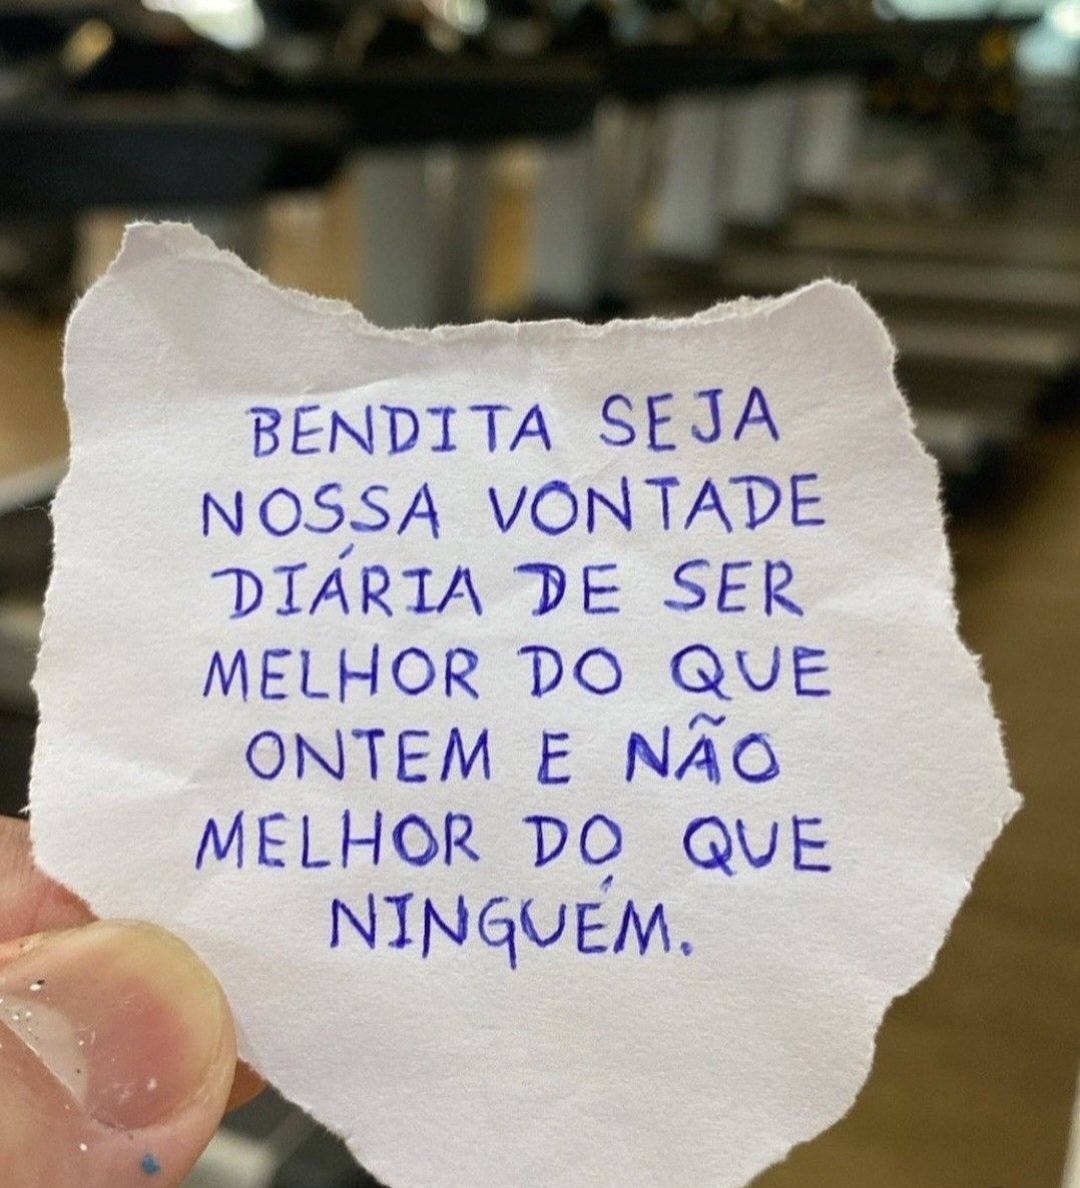 BENDITA SEJA
NOSSA VONTADE
DIÁRIA DE SER
MELHOR DO QUE
ONTEM E NÃO
MELHOR DO QUE
NINGUÉM.